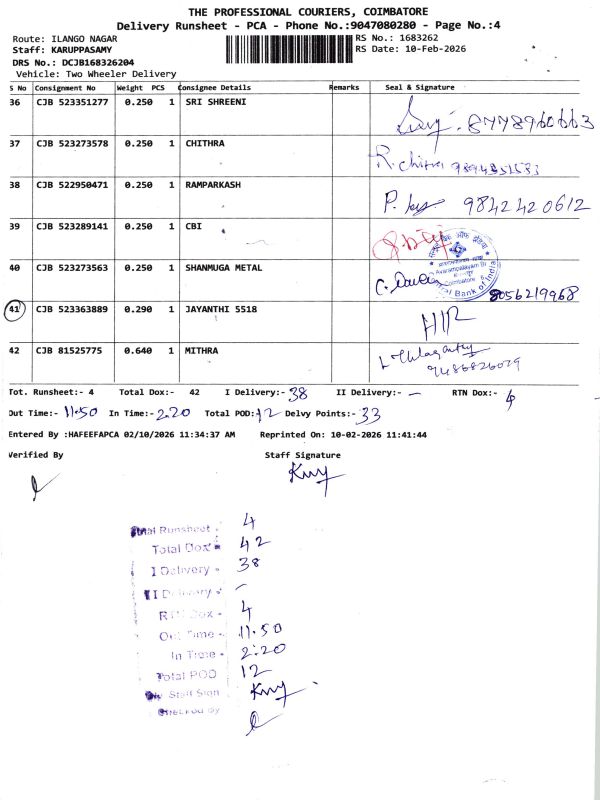 THE PROFESSIONAL COURIERS, COIMBATORE
Delivery Runsheet - PCA - Phone No.:9047080280 - Page No.:4
Route: ILANGO NAGAR
RS No.: 1683262
Staff: KARUPPASAMY
RS Date: 10-Feb-2026
DRS No.: DCJB168326204
Vehicle: Two Wheeler Delivery
S No Consignment No Weight PCS Consignee Details Remarks Seal & Signature
36 CJB 523351277 0.250 1 SRI SHREENI
37 CJB 523273578 0.250 1 CHITHRA R. chitra
38 CJB 522950471 0.250 1 RAMPARKASH 9842420612
39 CJB 523289141 0.250 1 CBI
40 CJB 523273563 0.250 1 SHANMUGA METAL 8056219968
41 CJB 523363889 0.290 1 JAYANTHI 5518
42 CJB 81525775 0.640 1 MITHRA
Tot. Runsheet:- 4 Total Dox:- 42 I Delivery:- 38 II Delivery:- - RTN Dox:- 4
Out Time:- 11.50 In Time:- 2.20 Total POD: 12 Delvy Points:- 33
Entered By :HAFEEFAPCA 02/10/2026 11:34:37 AM Reprinted On: 10-02-2026 11:41:44
Verified By Staff Signature
Total Runsheet - 4
Total Dox - 42
I Delivery - 38
II Delivery - -
RTN Dox - 4
Out Time - 11.50
In Time - 2:20
Total POD 12
Staff Sign
Checked By